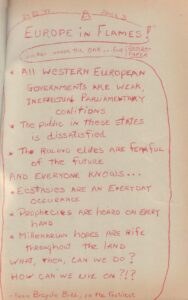 EUROPE IN FLAMES!
* All WESTERN EUROPEAN
GOVERNMENTS ARE WEAK,
INEFFECTUAL PARLIAMENTARY
COALITIONS
* The public in these states
is dissatisfied
* The RULING ELITES ARE FEARFUL
OF the future
AND EVERYONE KNOWS...
* Ecstasies are an EVERYDAY
OCCURENCE
* Prophecies are heard on EVERY
hand
* Millenarian hopes are rife
throughout the land
WHAT, THEN, CAN WE DO?
HOW CAN WE LIVE ON?!?